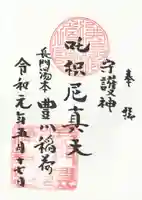 奉拝
守護神
吒枳尼真天
長門湯本 豊川稲荷
令和元年五月十七日